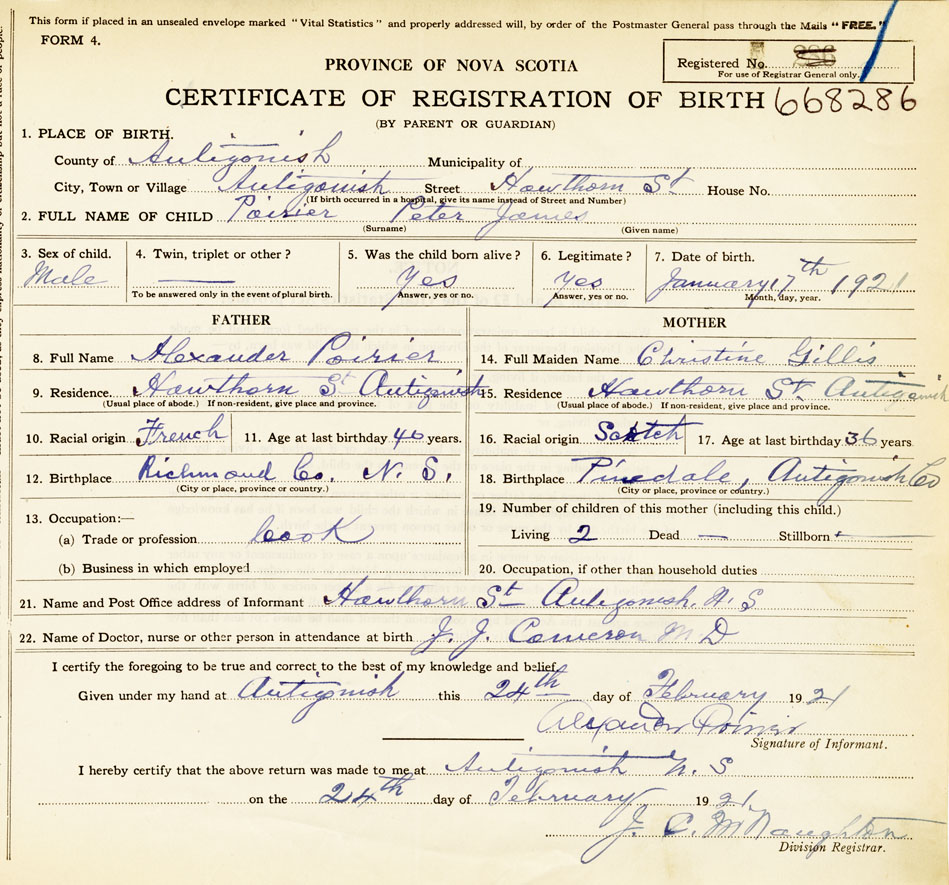 This form if placed in an unsealed envelope marked "Vital Statistics" and properly addressed will, by order of the Postmaster General pass through the Mails "FREE."
FORM 4.
Registered No. 286
For use of Registrar General only.
PROVINCE OF NOVA SCOTIA
CERTIFICATE OF REGISTRATION OF BIRTH 668286
(BY PARENT OR GUARDIAN)
1. PLACE OF BIRTH.
County of Antigonish Municipality of
City, Town or Village Antigonish Street Hawthorn St House No.
(If birth occurred in a hospital, give its name instead of Street and Number)
2. FULL NAME OF CHILD Poirier Peter James
(Surname) (Given name)
3. Sex of child. 4. Twin, triplet or other? 5. Was the child born alive? 6. Legitimate? 7. Date of birth.
Male — Yes Yes January 17th 1921
To be answered only in the event of plural birth. Answer, yes or no. Answer, yes or no. Month, day, year.
FATHER MOTHER
8. Full Name Alexander Poirier 14. Full Maiden Name Christine Gillis
9. Residence Hawthorn St Antigonish 15. Residence Hawthorn St. Antigonish
(Usual place of abode.) If non-resident, give place and province. (Usual place of abode.) If non-resident, give place and province.
10. Racial origin French 11. Age at last birthday 40 years. 16. Racial origin Scotch 17. Age at last birthday 36 years
12. Birthplace Richmond Co. N. S. 18. Birthplace Pinedale, Antigonish Co
(City or place, province or country.) (City or place, province or country.)
13. Occupation:— 19. Number of children of this mother (including this child.)
(a) Trade or profession Cook Living 2 Dead — Stillborn —
(b) Business in which employed 20. Occupation, if other than household duties
21. Name and Post Office address of Informant Hawthorn St Antigonish. N. S
22. Name of Doctor, nurse or other person in attendance at birth J. J. Cameron M D
I certify the foregoing to be true and correct to the best of my knowledge and belief.
Given under my hand at Antigonish this 24th day of February 1921
Alexander Poirier
Signature of Informant.
I hereby certify that the above return was made to me at Antigonish N. S
on the 24th day of February 1921.
J. C. McNaughton
Division Registrar.